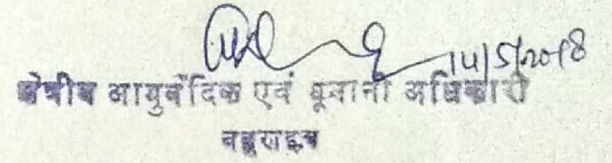 14/5/2018
क्षेत्रीय आयुर्वेदिक एवं यूनानी अधिकारी
बहराइच